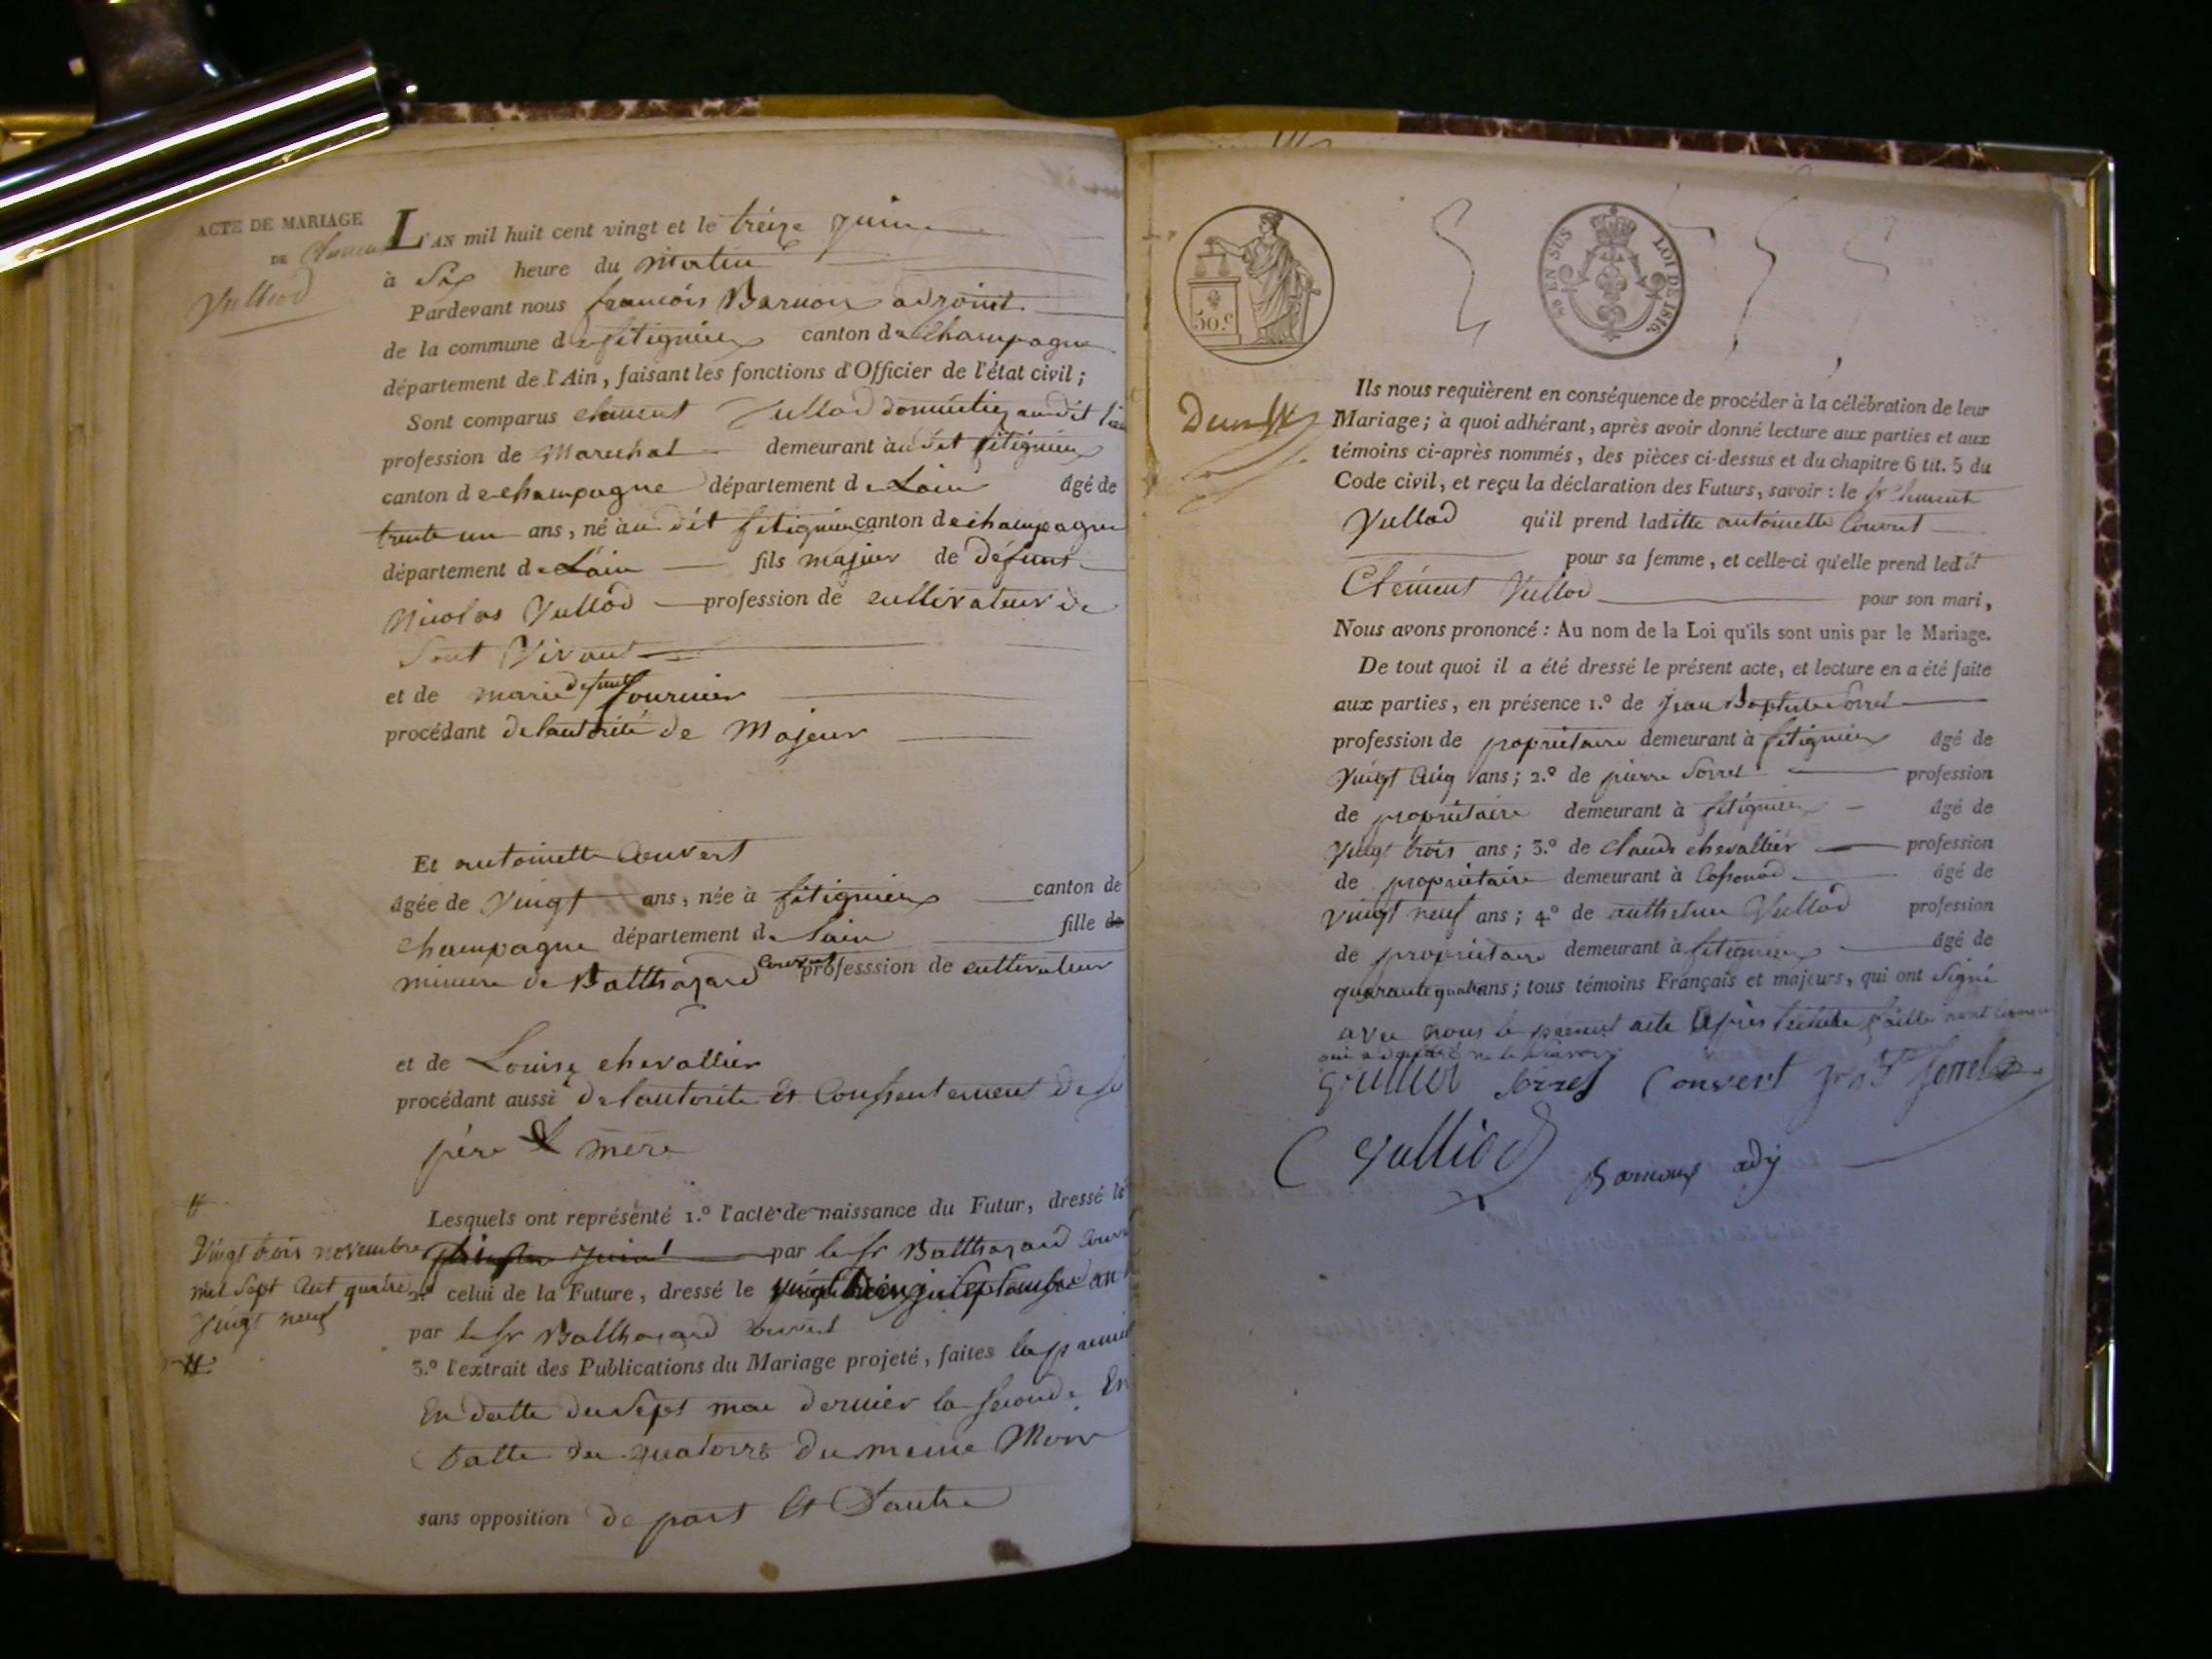 ACTE DE MARIAGE
DE
Vulliod
L'AN mil huit cent vingt et le treize juin
à Six heure du Matin
Pardevant nous francois Barnou adjoint
de la commune de fitignieu canton de Champagne
département de l'Ain, faisant les fonctions d'Officier de l'état civil;
Sont comparus clement Vullod audit
profession de Marechal demeurant audit fitignieu
canton de champagne département de Lain âgé de
trente un ans, né audit fitignieu canton de champagne
département de Lain fils majeur de défunt
Nicolas Vullod profession de cultivateur de
Sont Vivant
et de marie defunte fournier
procédant de lautorité de Majeur
Et antoinette Convert
âgée de Vingt ans, née à fitignieu canton de
Champagne département de Lain fille de
mineure de Balthazard Convert professsion de cultivateur
et de Louise chevallier
procédant aussi de lautorite Et Consentement de
père & mere
Lesquels ont représenté 1.º l'acte de naissance du Futur, dressé le
Vingt trois novembre
mil Sept Cent quatre
Vingt neuf
par le sr Balthazard
2.º celui de la Future, dressé le
par le sr Balthazard Convert
3.º l'extrait des Publications du Mariage projeté, faites la
En datte du Sept mai dernier la Seconde En
Datte du quatorze du meme Mois
sans opposition de part Et Dautre
50.C
EN SUS
LOI DE 1816.
Ils nous requièrent en conséquence de procéder à la célébration de leur
Mariage; à quoi adhérant, après avoir donné lecture aux parties et aux
témoins ci-après nommés, des pièces ci-dessus et du chapitre 6 tit. 5 du
Code civil, et reçu la déclaration des Futurs, savoir: le sr Clement
Vullod qu'il prend laditte antoinette Convert
pour sa femme, et celle-ci qu'elle prend ledit
Clément Vullod pour son mari,
Nous avons prononcé: Au nom de la Loi qu'ils sont unis par le Mariage.
De tout quoi il a été dressé le présent acte, et lecture en a été faite
aux parties, en présence 1.º de Jean Baptiste Sorrel
profession de propriétaire demeurant à fitignieu âgé de
Vingt Cinq ans; 2.º de pierre Sorrel profession
de propriétaire demeurant à fitignieu âgé de
Vingt trois ans; 3.º de claude chevallier profession
de propriétaire demeurant à âgé de
vingt neuf ans; 4.º de anthelme Vullod profession
de propriétaire demeurant à fitignieu âgé de
quarante quatre ans; tous témoins Français et majeurs, qui ont Signé
avec nous le présent acte après lecture faitte
Sorrel Convert Sorrel
Vulliod
adj